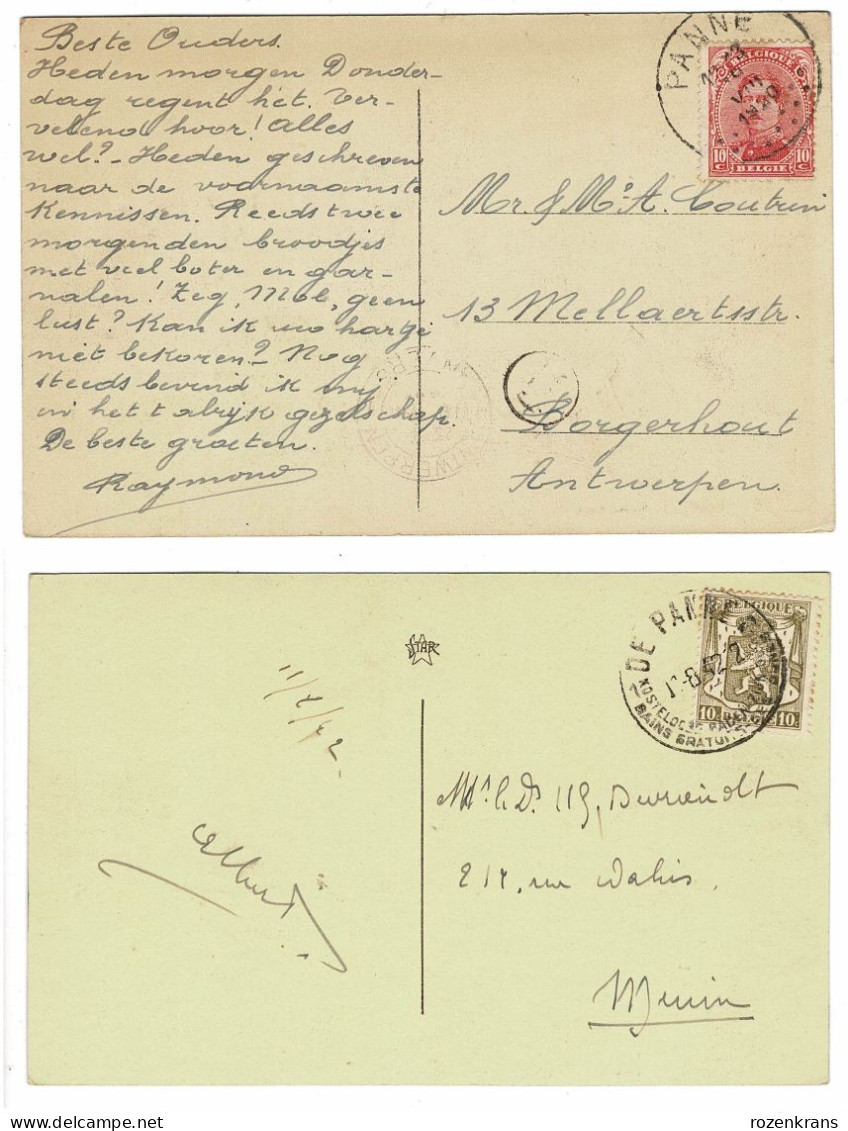 Beste Ouders.
Heden morgen Donder-
dag regent het. Ver-
velend hoor! Alles
wel? - Heden geschreven
naar de voornaamste
Kennissen. Reeds twee
morgenden broodjes
met veel boter en gar-
nalen! Zeg, Moe, geen
lust? Kan ik uw hartje
niet bekoren? Nog
steeds bevind ik mij
in het talrijk gezelschap.
De beste groeten.
Raymond
PANNE
VIII
1920
BELGIQUE
10 C 10 C
BELGIE
Mr. & Me A. Coutrin
13 Mellaertsstr.
Borgerhout
Antwerpen.
ANTWERPEN
ANVERS
STAR
11/8/52
Albert
DE PANNE
KOSTELOOZE BADEN
BAINS GRATUITS
BELGIQUE
10 c. BELGIE 10 c.
217, rue Wahis.
Menin
rozenkrans